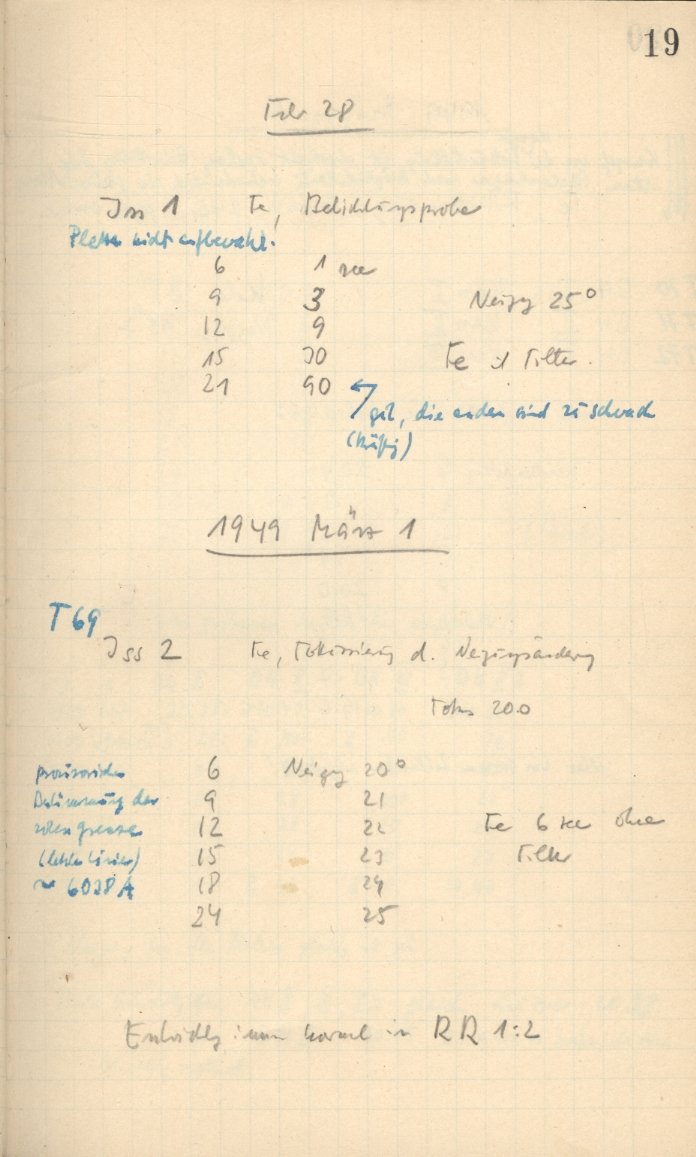 19
Febr 28
Iss 1 Fe, Belichtungsprobe
Platten nicht aufbewahrt.
6 1 sec
9 3 Neigg 25°
12 9
15 30 Fe Filter.
21 90
gut, die anderen sind zu schwach
(kräftig)
1949 März 1
T 69
Iss 2 Fe, Fokussierung d. Neigungsänderung
Fokus 20.0
provisorische 6 Neigg 20°
Bestimmung der 9 21
roten Grenze 12 22 Fe 6 sec ohne
(letzte Linie) 15 23 Filter
18 24
24 25
Entwicklg immer normal in RR 1:2